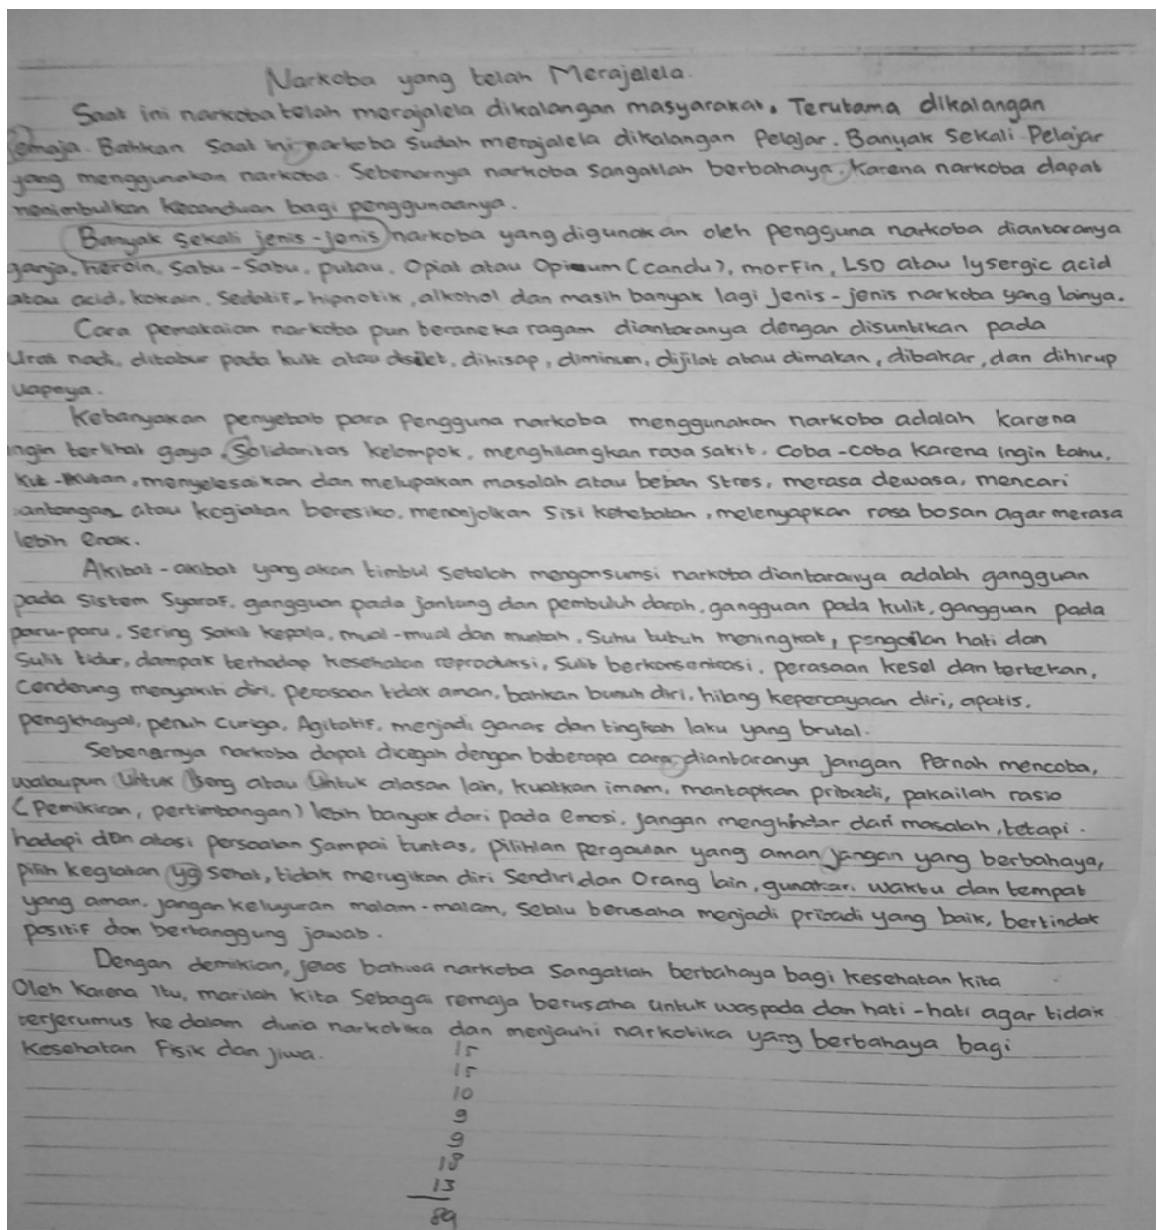 Narkoba yang telah Merajalela.
Saat ini narkoba telah merajalela dikalangan masyarakat. Terutama dikalangan
remaja. Bahkan Saat ini narkoba Sudah merajalela dikalangan Pelajar. Banyak Sekali Pelajar
yang menggunakan narkoba. Sebenarnya narkoba Sangatlah berbahaya. Karena narkoba dapat
menimbulkan kecanduan bagi penggunaanya.
Banyak Sekali jenis-jenis narkoba yang digunakan oleh Pengguna narkoba diantaranya
ganja, heroin, Sabu-Sabu, putau, Opiat atau Opium (candu), morfin, LSD atau lysergic acid
atau acid, kokain, Sedatif-hipnotik, alkohol dan masih banyak lagi jenis-jenis narkoba yang lainya.
Cara pemakaian narkoba pun beraneka ragam diantaranya dengan disuntikan pada
Urat nadi, ditabur pada kulit atau disilet, dihisap, diminum, dijilat atau dimakan, dibakar, dan dihirup
uapnya.
Kebanyakan penyebab para Pengguna narkoba menggunakan narkoba adalah Karena
ingin terlihat gaya, Solidaritas kelompok, menghilangkan rasa sakit. Coba-coba Karena ingin tahu,
ikut-ikutan, menyelesaikan dan melupakan masalah atau beban Stres, merasa dewasa, mencari
tantangan atau kegiatan beresiko, menonjolkan Sisi kehebatan, melenyapkan rasa bosan agar merasa
lebih Enak.
Akibat-akibat yang akan timbul Setelah mengonsumsi narkoba diantaranya adalah gangguan
pada Sistem Syaraf, gangguan pada jantung dan pembuluh darah, gangguan pada kulit, gangguan pada
paru-paru, Sering Sakit Kepala, mual-mual dan muntah, Suhu tubuh meningkat, hati dan
Sulit tidur, dampak terhadap kesehatan reproduksi, Sulit berkonsentrasi, perasaan kesel dan tertekan,
Cenderung menyakiti diri, perasaan tidak aman, bahkan bunuh diri, hilang kepercayaan diri, apatis,
pengkhayal, penuh curiga, Agitatif, menjadi ganas dan tingkah laku yang brutal.
Sebenarnya narkoba dapat dicegah dengan beberapa cara diantaranya jangan Pernah mencoba,
walaupun Untuk Iseng atau Untuk alasan lain, kuatkan imam, mantapkan pribadi, pakailah rasio
(Pemikiran, pertimbangan) lebih banyak dari pada Emosi, jangan menghindar dari masalah, tetapi
hadapi dan atasi persoalan Sampai tuntas, Pilihlan pergaulan yang aman jangan yang berbahaya,
pilih kegiatan yg Sehat, tidak merugikan diri Sendiri dan Orang lain, gunakan waktu dan tempat
yang aman, jangan keluyuran malam-malam, Selalu berusaha menjadi pribadi yang baik, bertindak
positif dan bertanggung jawab.
Dengan demikian, jelas bahwa narkoba Sangatlah berbahaya bagi kesehatan kita
Oleh Karena Itu, marilah kita Sebagai remaja berusaha untuk waspada dan hati-hati agar tidak
terjerumus ke dalam dunia narkotika dan menjauhi narkotika yang berbahaya bagi
Kesehatan Fisik dan jiwa.
15
15
10
9
9
18
13
89